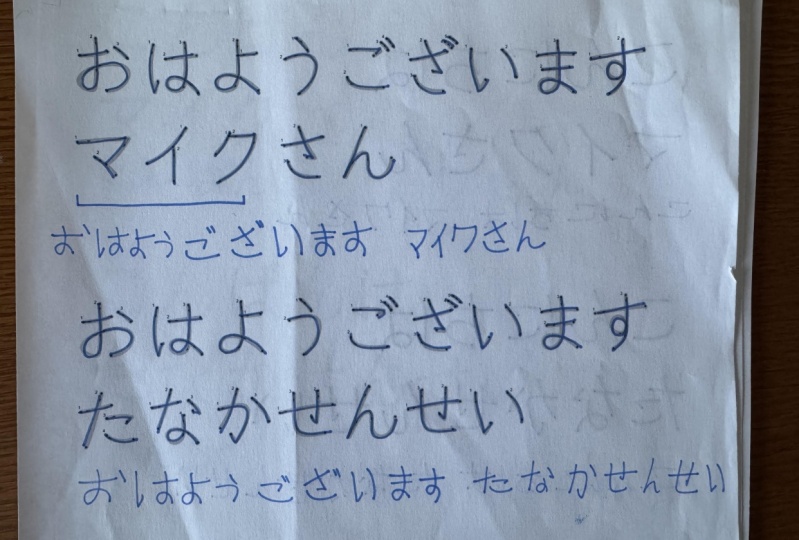 おはようございます
マイクさん
おはようございます マイクさん
おはようございます
たなかせんせい
おはようございます たなかせんせい